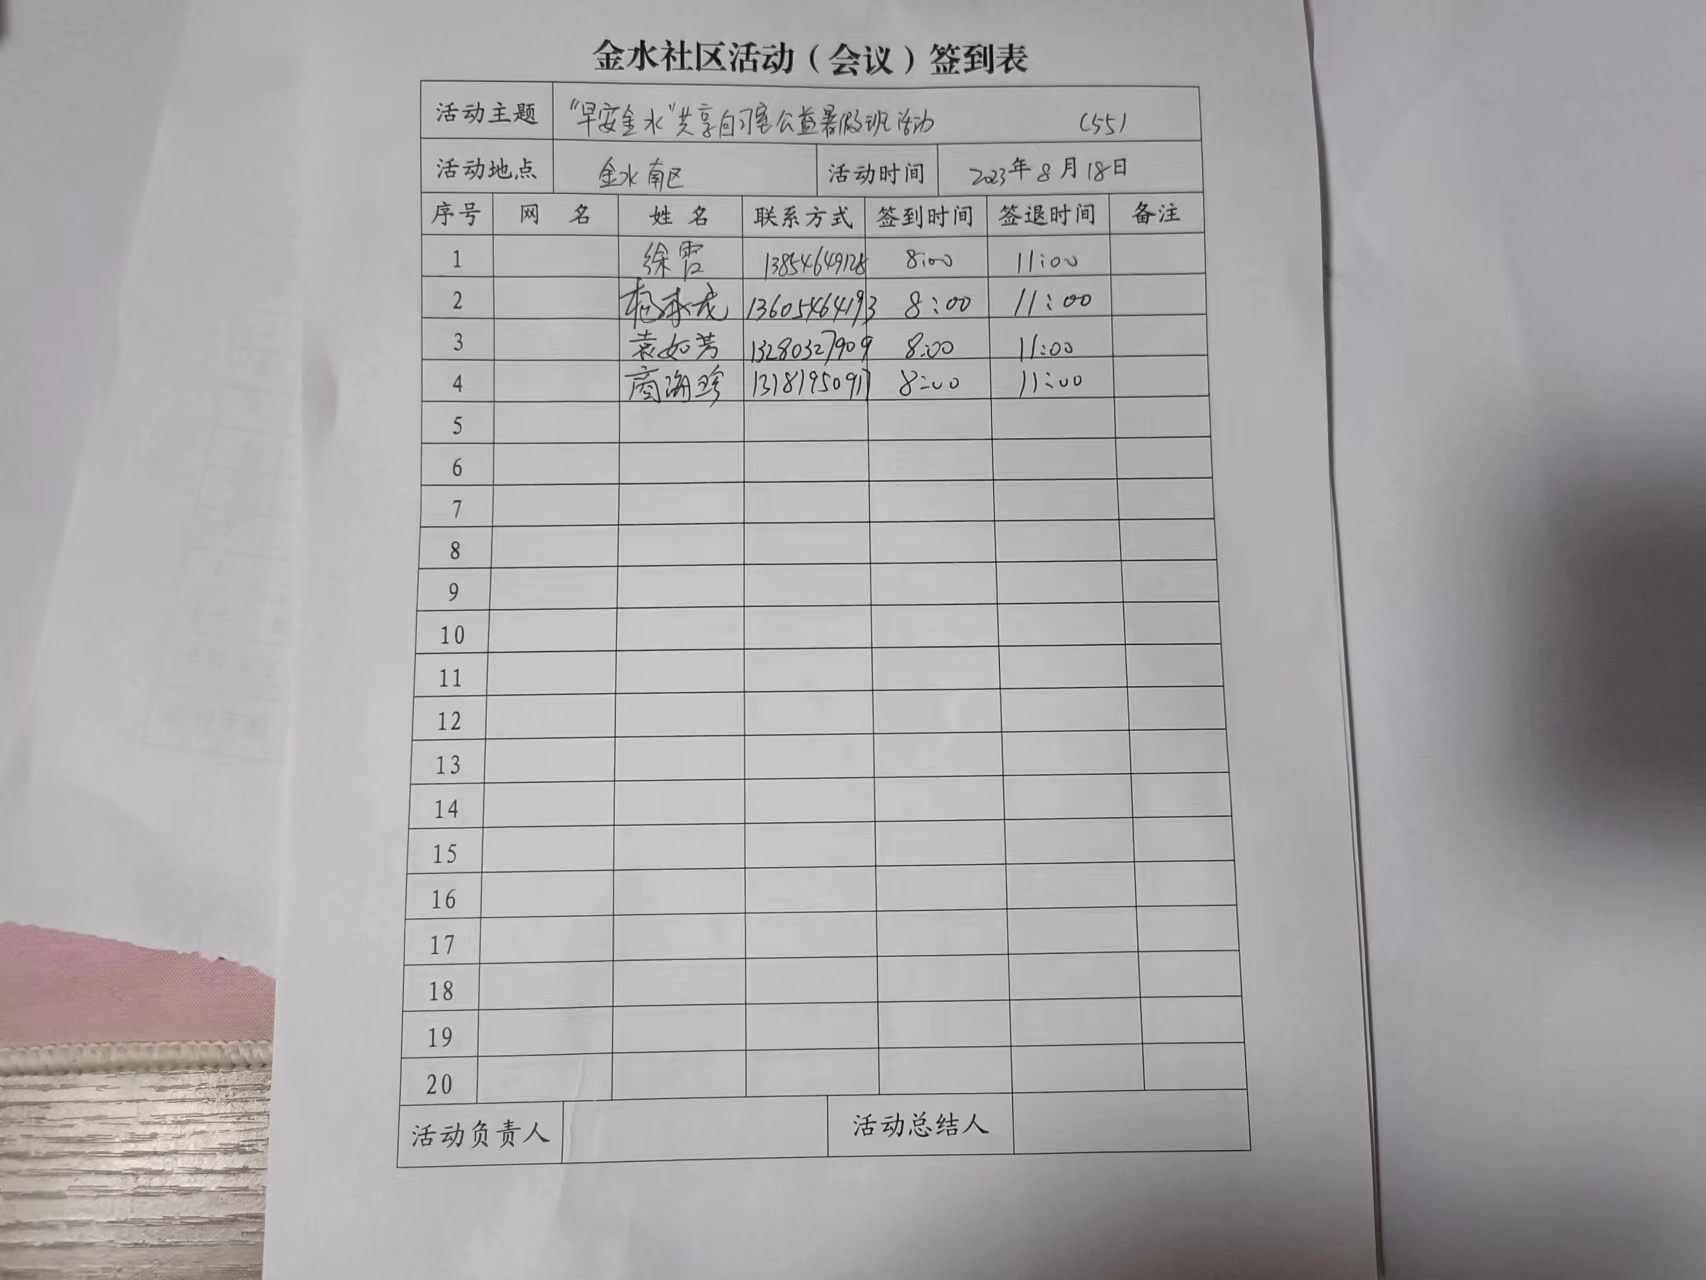 金水社区活动（会议）签到表
活动主题 "早安金水"共享自习室公益暑假班活动 (55)
活动地点 金水南区 活动时间 2023年8月18日
序号 网 名 姓 名 联系方式 签到时间 签退时间 备注
1 徐霞 13854649128 8:00 11:00
2 13605464193 8:00 11:00
3 袁如芳 13280327909 8:00 11:00
4 商海珍 13181950917 8:00 11:00
5
6
7
8
9
10
11
12
13
14
15
16
17
18
19
20
活动负责人 活动总结人